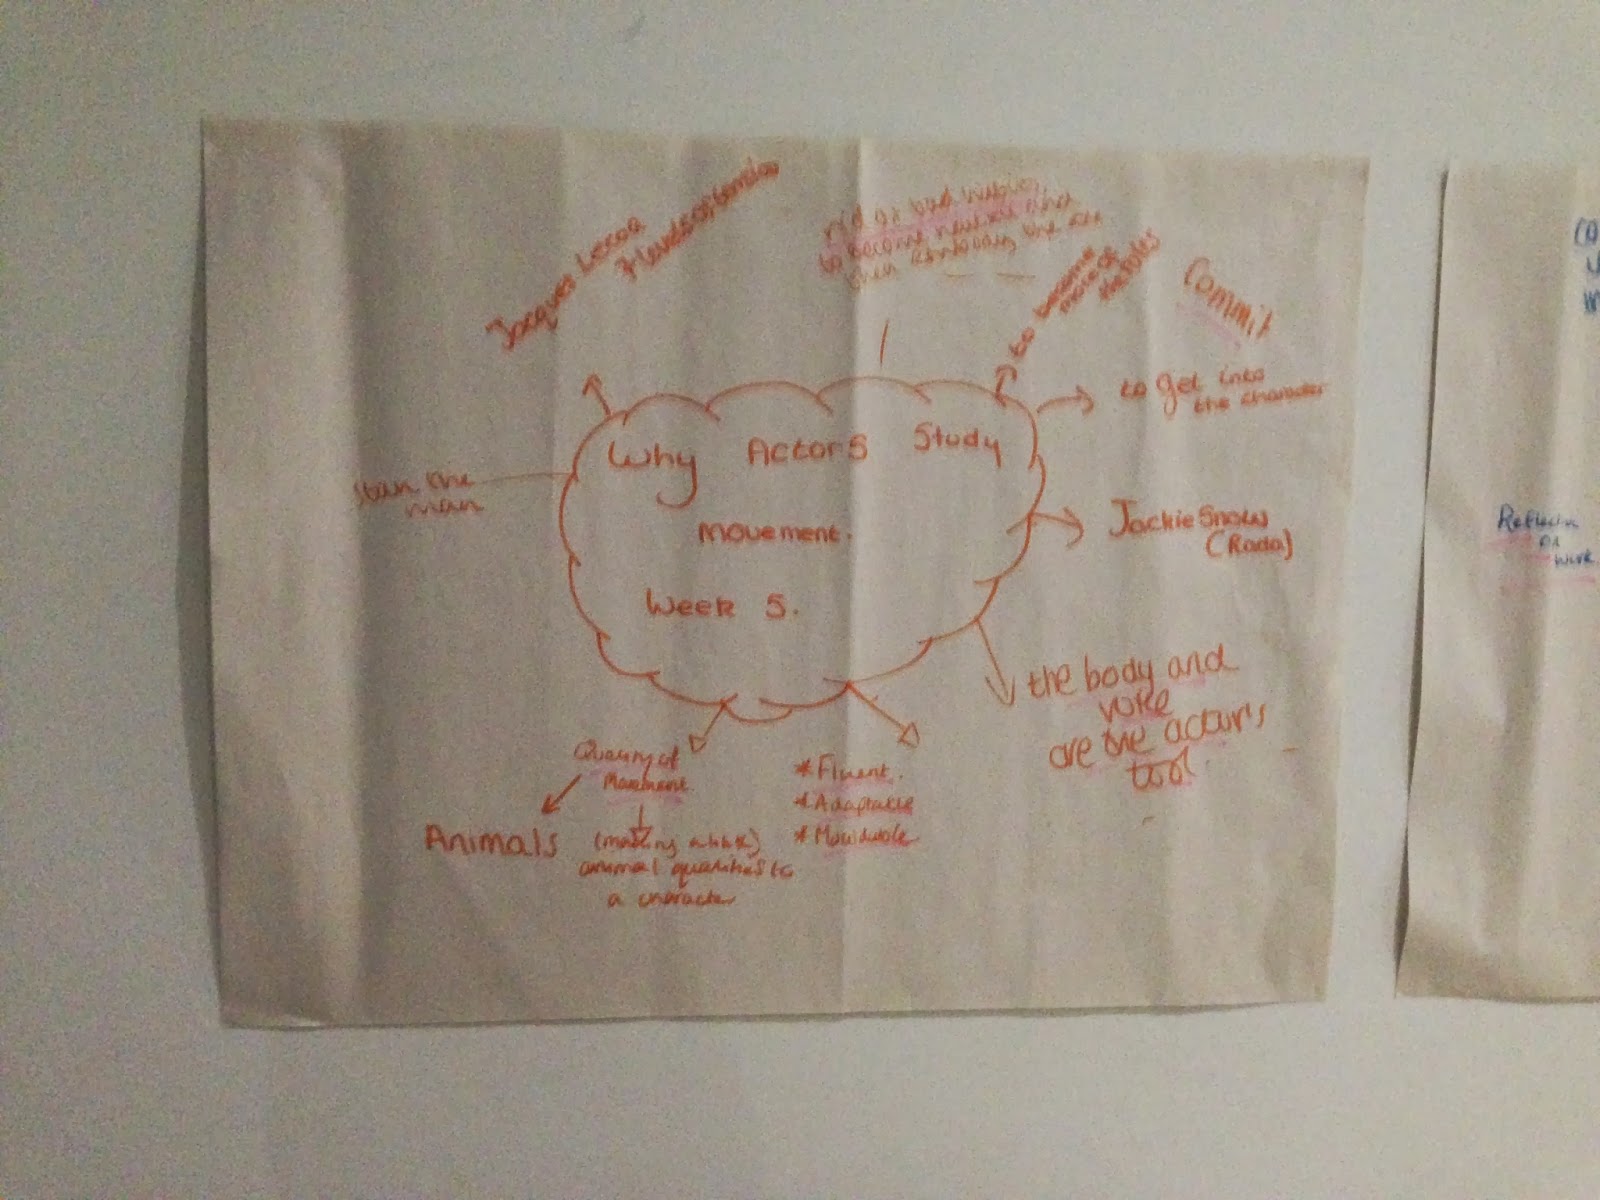 Jacques Lecoq
rid of bad habits,
to become neutral and
then embody the
to become
more
Commit
to get into
the character
Why Actors Study
Movement.
Week 5.
Stan the
man
Jackie Snow
(Rada)
the body and
voice
are the actor's
tool
Quality of
Movement
Animals
(making
animal qualities to
a character
*Fluent.
*Adaptable
*
Reflection
on
work